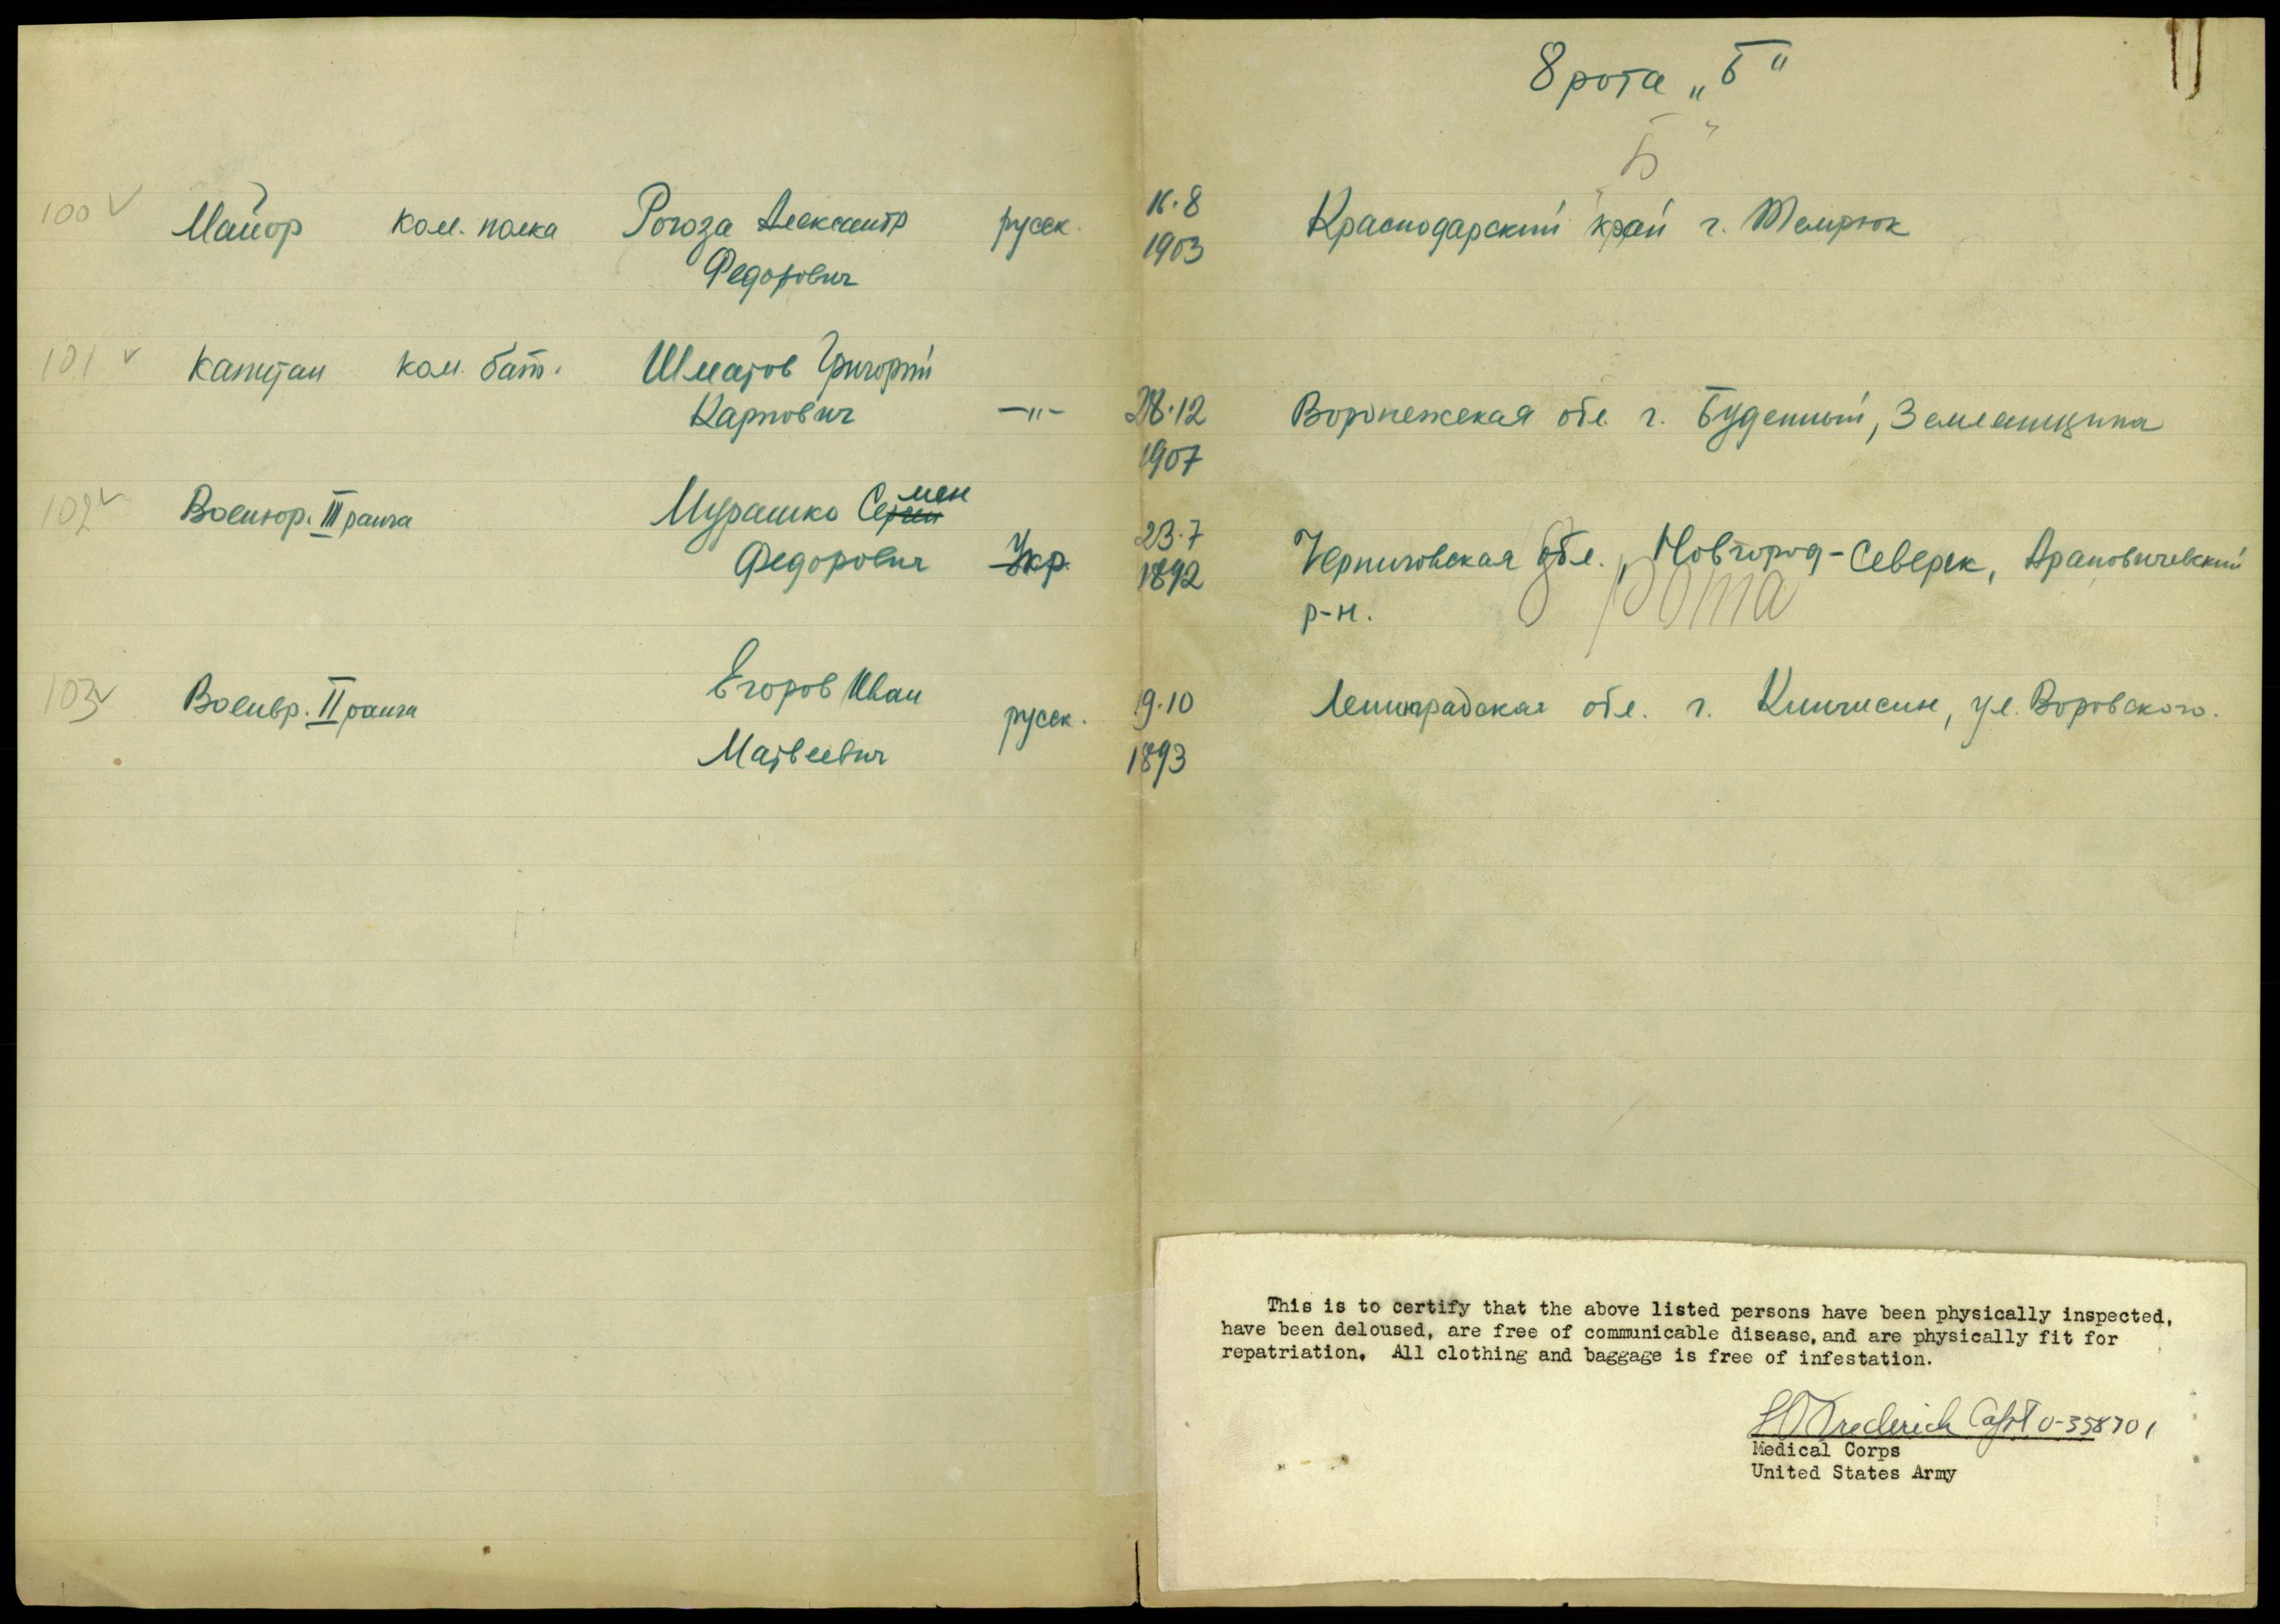 8 рота „Б"
Б"
100 ✓ Майор ком. полка Рогоза Александр русск. 16.8 Краснодарский край г. Темрюк
Федорович 1903
101 ✓ Капитан ком. бат. Шматов Григорий
Карпович —"— 28.12 Воронежская обл. г. Буденный, Землянщина
1907
102 ✓ Военюр. III ранга Мурашко Семен
Федорович Укр. 23.7 Черниговская обл., Новгород-Северск, Арановичевский
1892 р-н.
8 рота
103 ✓ Военвр. II ранга Егоров Иван русск. 19.10 Ленинградская обл. г. Кингисип, ул. Воровского.
Матвеевич 1893
This is to certify that the above listed persons have been physically inspected,
have been deloused, are free of communicable disease, and are physically fit for
repatriation. All clothing and baggage is free of infestation.
Frederick Capt 0-358701
Medical Corps
United States Army